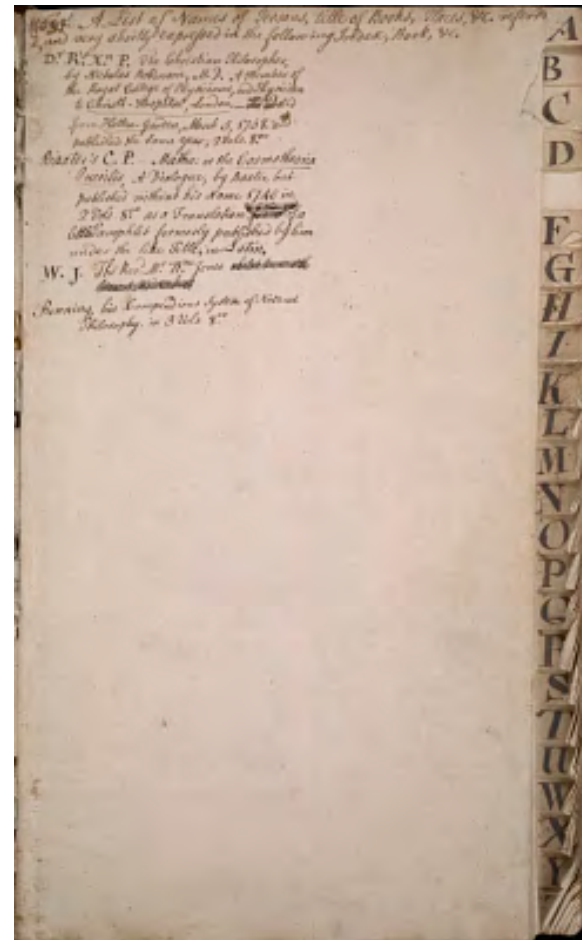 A List of Names of Persons, title of Books, Places, &c. referr'd
and very shortly expressed in the following Index, Book, &c.
Dr. R's. Xn. P. The Christian Philosopher,
by Nicholas Robinson, M.D. A Member of
the Royal College of Physicians, and Physician
to Christ's-Hospital, London,
from Hatton-Garden, March 5,
published the same year, 2 Vols. 8vo
Baxter's C. P. Matho: or the Cosmotheoria
Puerilis, A Dialogue, by Baxter, but
published without his Name 1740 in
2 Vols. 8vo as a Translation of a
little Pamphlet formerly published by him
under the like Title, in Latin.
W. J. The Revd. Mr. Wm. Jones
Rowning, his Compendious System of Natural
Philosophy. in 3 Vols. 8vo
A
B
C
D
F
G
H
I
K
L
M
N
O
P
Q
R
S
T
U
W
X
Y